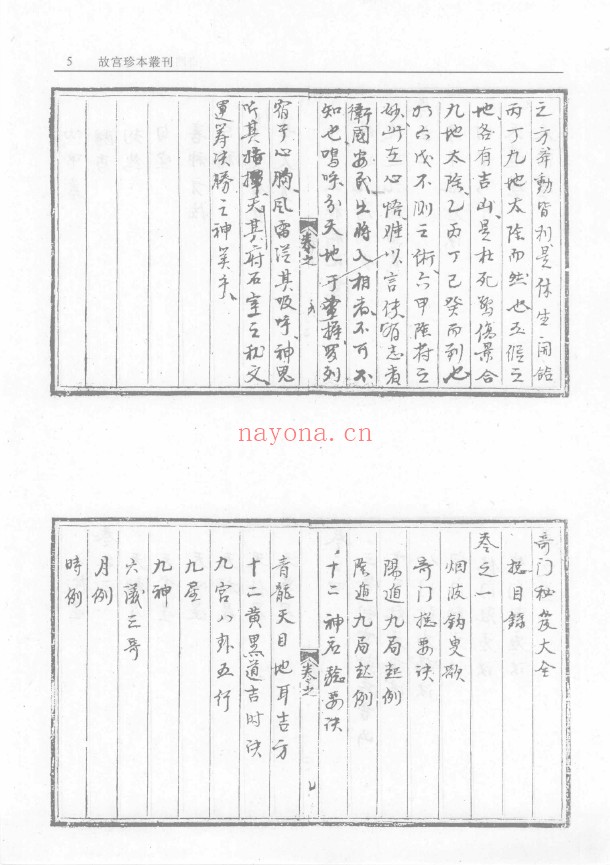 5 故宫珍本叢刊
之方舉動皆利是休生開皆
丙丁九地太陰而然也五假之
地各有吉凶是杜死驚傷景合
九地太陰乙丙丁己癸而到也
如六戊不測之術六甲陰符之
妙此在心悟难以言传有志者
衛國安民出將入相者不可不
知也嗚呼天地于掌握罗列
宿于心胸風雷從其吸呼神鬼
听其指揮天其府石室之秘文
運筹决勝之神算乎
卷之
nayona.cn
奇门秘發大全
摠目錄
卷之一
烟波钓叟歌
奇门摠要诀
陽遁九局起例
陰遁九局起例
十二神应验要诀
青龍天目地耳吉方
十二黄黑道吉时诀
九宫八卦五行
九星
九神
六儀三奇
月例
時例
卷之